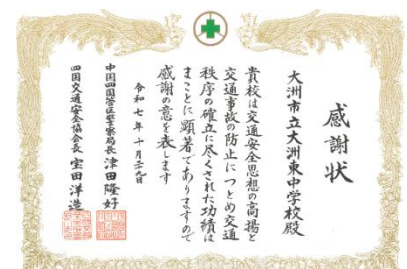 感謝状
大洲市立大洲東中学校殿
貴校は交通安全思想の高揚と
交通事故の防止につとめ交通
秩序の確立に尽くされた功績は
まことに顕著でありますので
感謝の意を表します
令和七年十月二十九日
中国四国管区警察局長 津田隆好
四国交通安全協会長 宝田洋造